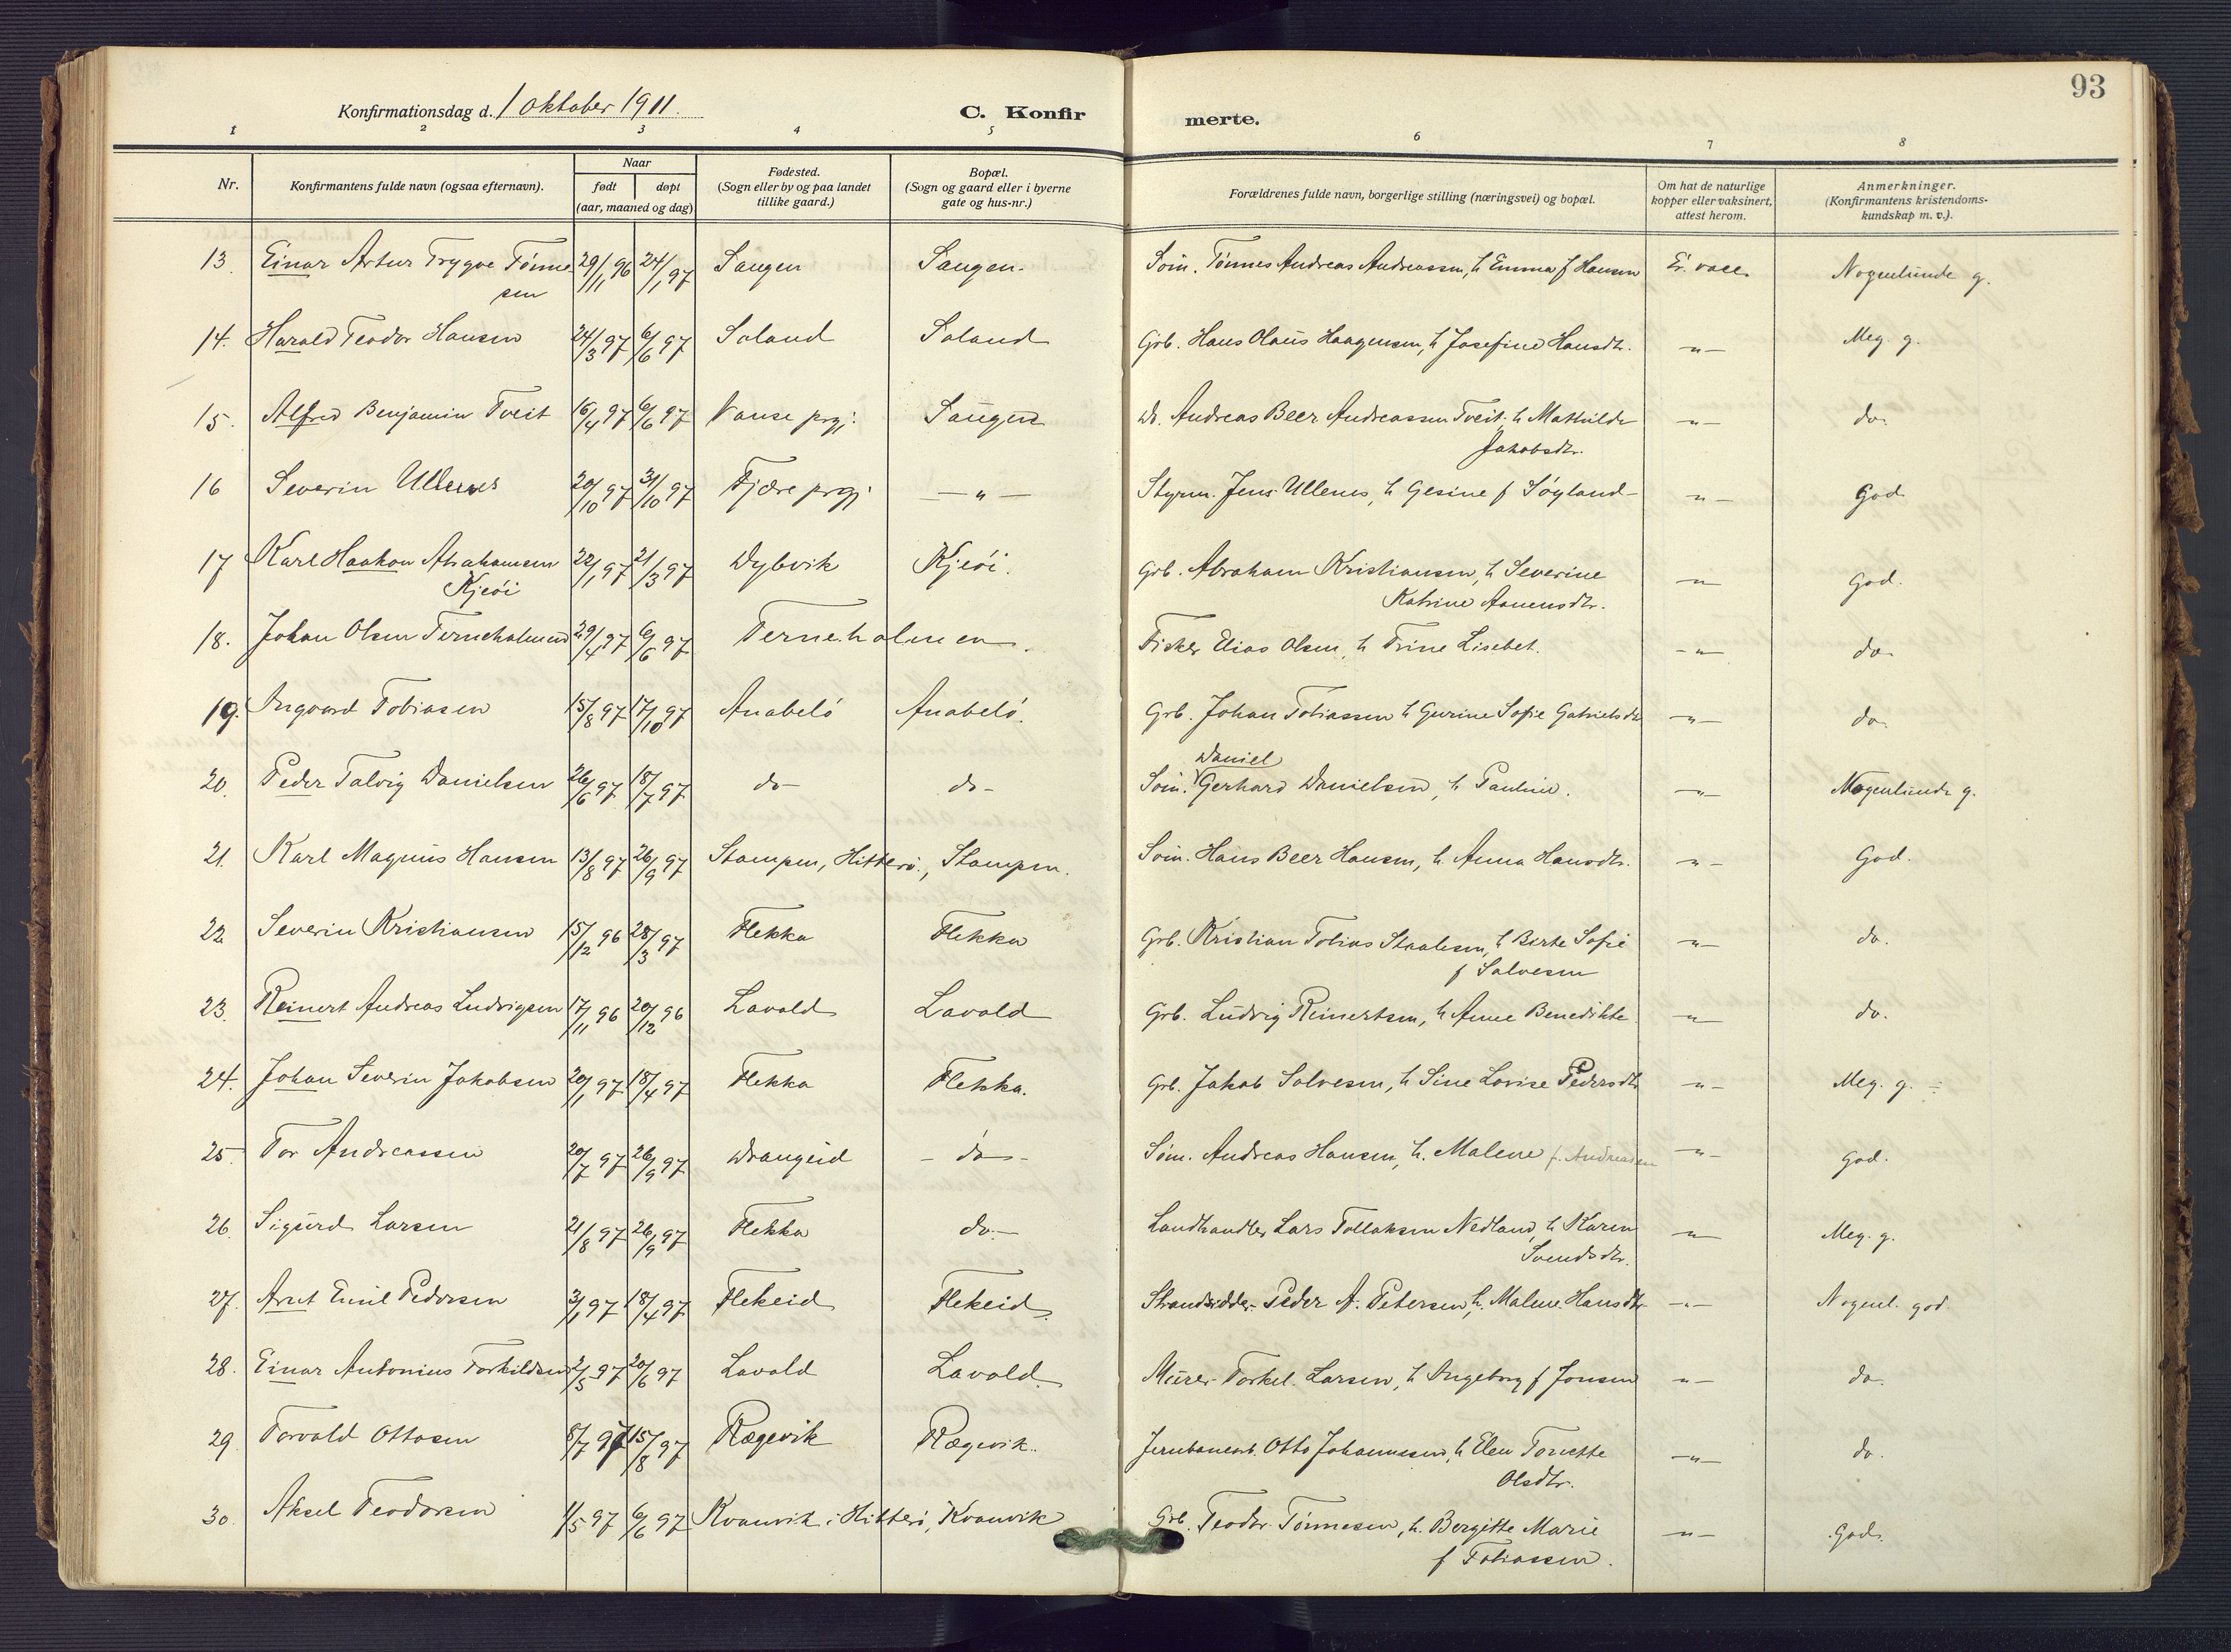 93
Konfirmationsdag d. 1 oktober 1911.
C. Konfirmerte.
1 2 3 4 5 6 7 8
Nr.
Konfirmantens fulde navn (ogsaa efternavn).
Naar
født døpt
(aar, maaned og dag)
Fødested.
(Sogn eller by og paa landet
tillike gaard.)
Bopæl.
(Sogn og gaard eller i byerne
gate og hus-nr.)
Forældrenes fulde navn, borgerlige stilling (næringsvei) og bopæl.
Om hat de naturlige
kopper eller vaksinert,
attest herom.
Anmerkninger.
(Konfirmantens kristendoms-
kundskap m. v.).
13. Einar Artur Trygve Tønne 29/11 96 24/1 97 Saugen Saugen. Søm. Tønnes Andreas Andreassen, h Emma f Hansen Er. vacc. Nogenlunde g.
sen
14. Harald Teodor Hansen 24/3 97 6/6 97 Soland Soland Grb. Hans Olaus Haagensen, h Josefine Hansdtr. -"- Meg. g.
15. Alfred Benjamin Tveit 16/4 97 6/6 97 Vanse prgj. Saugen Do. Andreas Beer Andreassen Tveit, h Mathilde -"- do.
Jakobsdtr.
16 Severin Ullenes 20/10 97 31/10 97 Fjære prgj. -"- Styrm. Jens Ullenes, h Gesine f Søyland -"- God
17 Karl Haakon Abrahamsen 22/1 97 21/3 97 Dybvik Kjeöi. Grb. Abraham Kristiansen, h Severine -"- God.
Kjeöi
Katrine Aanensdtr.
18. Johan Olsen Terneholmen 29/4 97 6/6 97 Terneholmen. Fisker Elias Olsen, h Trine Lisebet. -"- do.
19. Ingvard Tobiasen 15/8 97 17/10 97 Anabelö Anabelö. Grb. Johan Tobiassen h Gurine Sofie Gabrielsdtr -"- do.
Daniel
20. Peder Talvig Danielsen 26/6 97 18/7 97 do - do - Søm. Gerhard Danielsen, h Pauline. -"- Nogenlunde g.
21. Karl Magnus Hansen 13/8 97 26/9 97 Stampen, Hitterö., Stampen. Søm. Hans Beer Hansen, h. Anna Hansdtr. -"- God.
22 Severin Kristiansen 15/12 96 28/3 97 Flekka Flekka Grb. Kristian Tobias Staalesen, h Berte Sofie -"- do.
f Salvesen
23. Reinert Andreas Ludvigsen 17/11 96 20/12 96 Lavold Lavold Grb. Ludvig Reinertsen, h Anne Benedikte -"- do.
24. Johan Severin Jakobsen 20/1 97 18/4 97 Flekka Flekka. Grb. Jakob Salvesen, h Sine Lovise Pedersdtr -"- Meg. g. -
25 Tor Andreassen 20/7 97 26/9 97 Drangeid - do - Søm. Andreas Hansen, h. Malene f. Andreasen -"- God.
26. Sigurd Larsen 21/8 97 26/9 97 Flekka do.- Landhandler Lars Tollaksen Nedland, h Karen -"- Meg. g.
Svendsdtr.
27. Arnt Emil Pedersen 3/1 97 18/4 97 Flekeid Flekeid. Strandsidder Peder A. Petersen, h. Malene Hansdtr -"- Nogenl. god
28. Einar Antonius Torkildsen 2/5 97 20/6 97 Lavold Lavold. Murer Torkel Larsen, h Ingeborg f Jonsen -"- do.
29. Torvald Ottosen 8/7 97 15/8 97 Rægevik Rægevik. Jernbanearb. Otto Johannessen, h Elen Torvette -"- do.
Olsdtr.
30. Aksel Teodorsen 1/5 97 6/6 97 Kvanvik i Hitterö, Kvanvik Grb. Teodor Tønnesen, h. Bergitte Marie -"- God.
f Tobiassen.